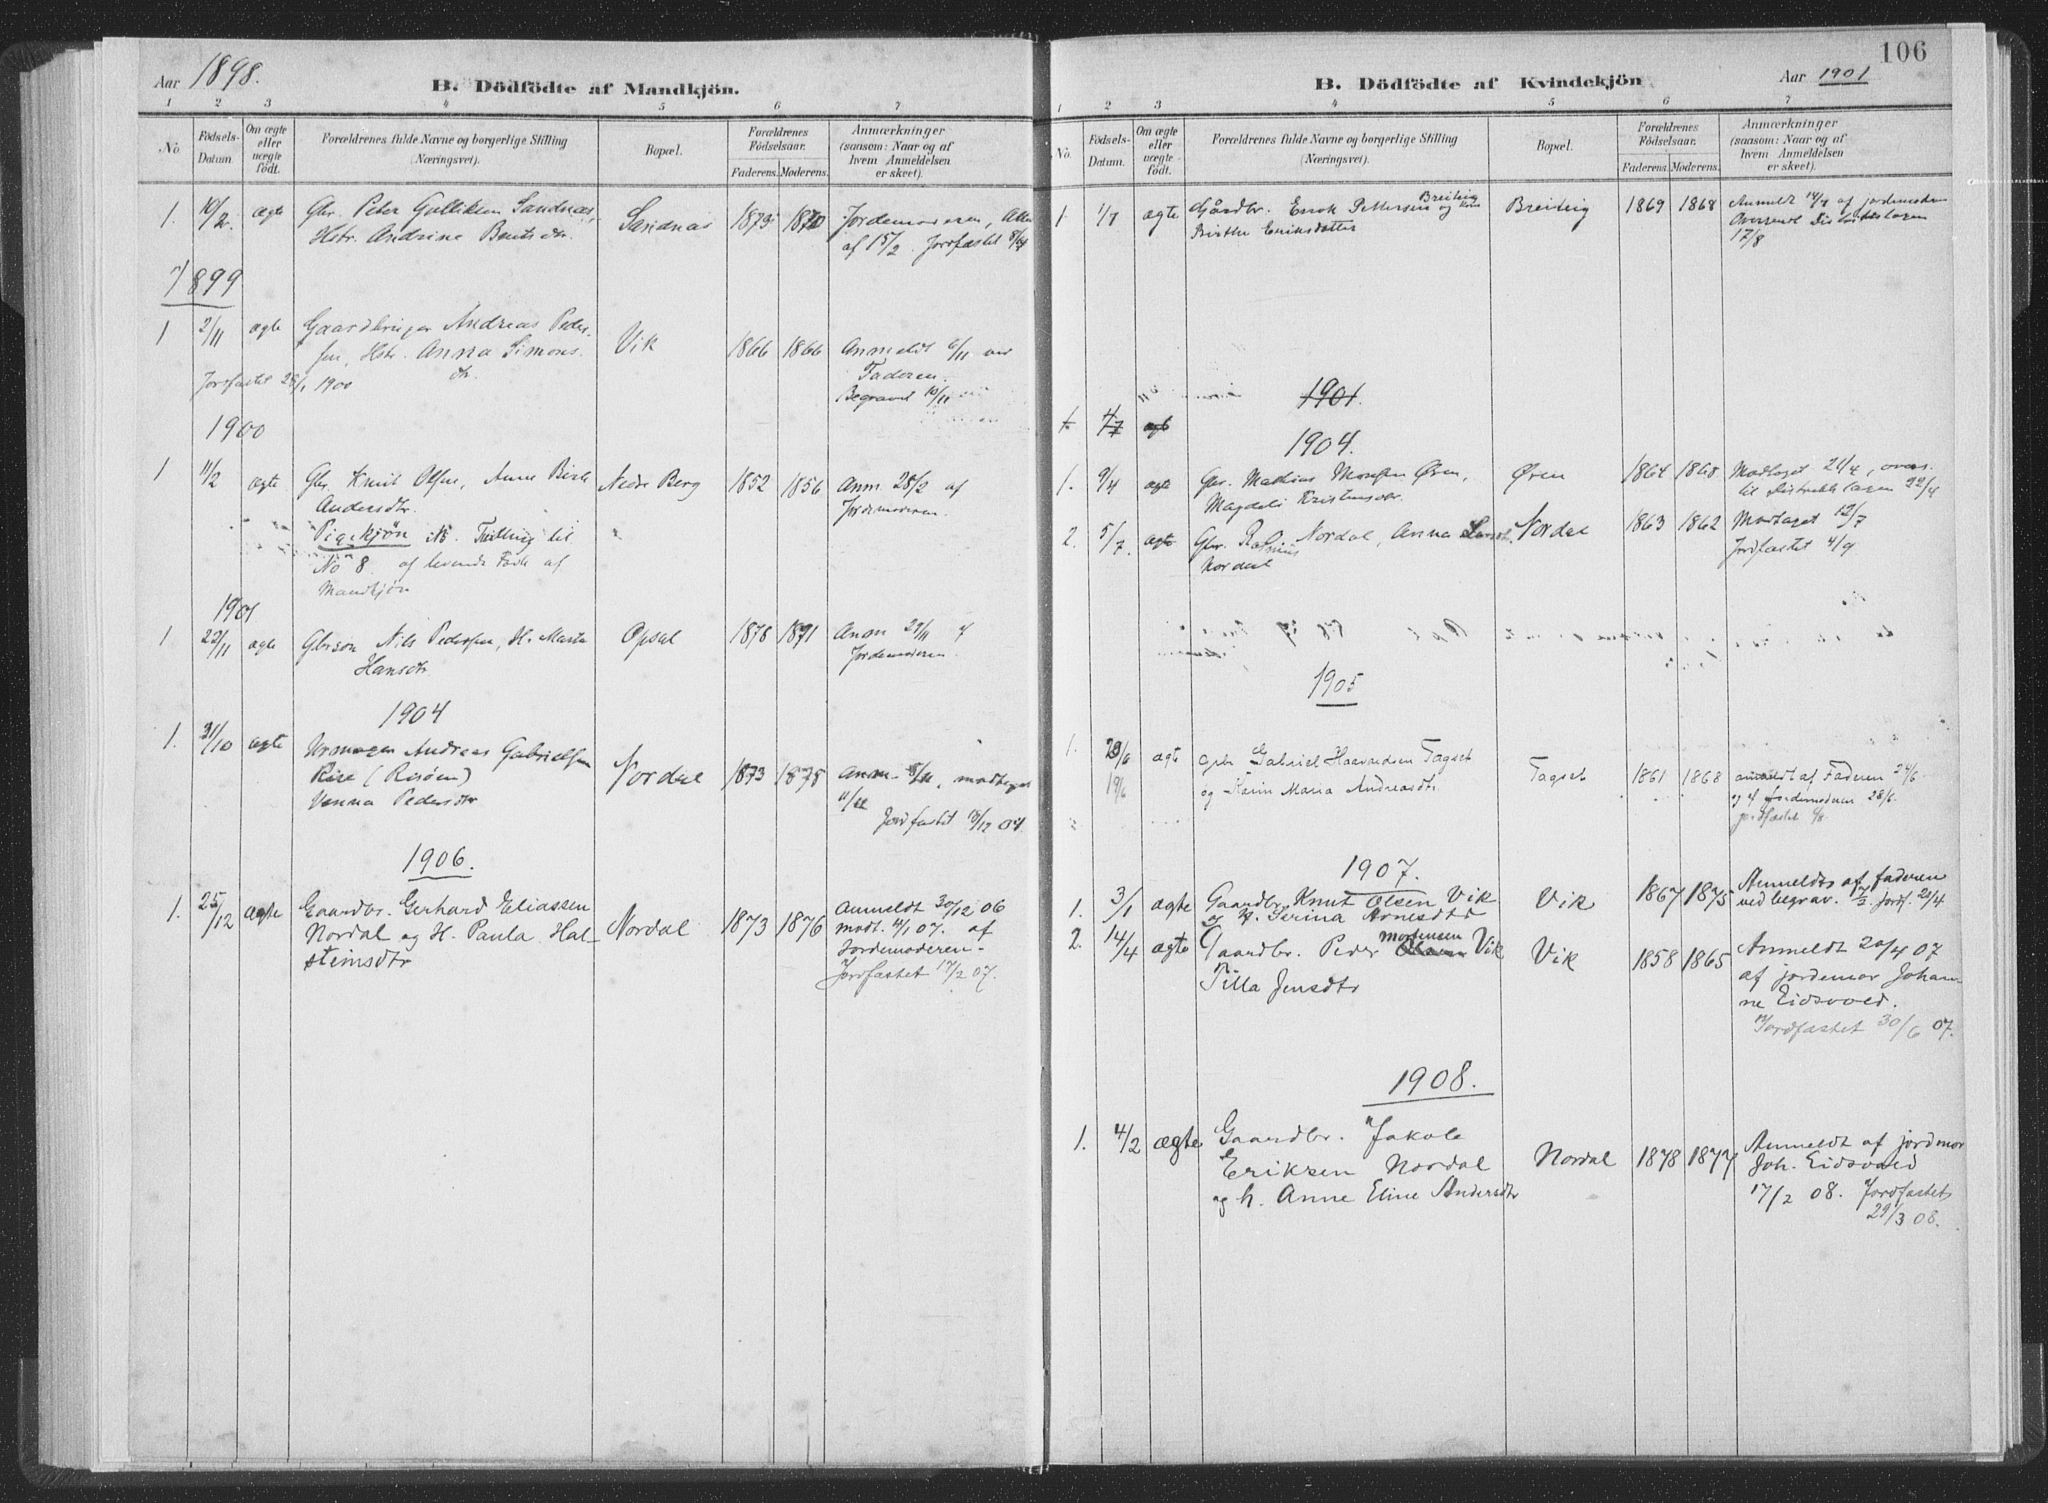 Aar 1898.
B. Dödfödte af Mandkjön.
1 2 3 4 5 6 7
No.
Födsels-
Datum.
Om ægte
eller
uægte
födt.
Forældrenes fulde Navne og borgerlige Stilling
(Næringsvei).
Bopæl.
Forældrenes
Födselsaar.
Faderens. Moderens.
Anmærkninger
(saasom: Naar og af
hvem Anmeldelsen
er skeet).
1. 10/2. ægte Gbr. Peter Sandnæs, Sandnæs 1873 1870 Jordemoderen,
Hstr. Andrine af 15/2. Jordfæstet
1899
1 2/11 ægte Gaardbruger Andreas Peder- Vik 1866 1866 Anmeldt 6/11 av
sen, Hstr. Anna Simons- Faderen.
dtr.
Jordfæstet 28/1 1900
Begravet 10/11
1900
1 11/2 ægte Gbr. Knut Olsen, Anne Berte Nedre Berg 1852 1856 Anm. 28/2 af
Andersdtr. Jordemoderen.
Pigekjön Tvilling til
No 8 af levende Födte af
Mandkjön
1901
1 23/11 ægte Gbrsøn Nils Pedersen, H. Marta Opsal 1878 1871 Anm 29/11 af
Hansdtr. Jordemoderen.
1904
1. 31/10 ægte Urmager Andreas Gabrielsen
Rise (Risöen) Nordal 1873 1875 Anm. 8/11, modtaget
Vanna Pedersdtr 11/11
Jordfæstet 18/12 04.
1906.
1. 25/12 ægte Gaardbr. Gerhard Eliassen Nordal 1873 1876 Anmeldt 30/12 06
Nordal og H. Paula Hal- modt. 4/1 07. af
steinsdtr Jordemoderen.
Jordfæstet 17/2 07.
106
B. Dödfödte af Kvindekjön
Aar 1901
1 2 3 4 5 6 7
No.
Födsels-
Datum.
Om ægte
eller
uægte
födt.
Forældrenes fulde Navne og borgerlige Stilling
(Næringsvei).
Bopæl.
Forældrenes
Födselsaar.
Faderens. Moderens.
Anmærkninger
(saasom: Naar og af
hvem Anmeldelsen
er skeet).
1 1/7 ægte Gårdbr. Enok Pettersen Breivig og Breivig 1869 1868 Anmeldt 14/7 af jordemoderen
Birthe Eriksdatter Oversendt Distriktslægen
17/8
1901.
1 4/7 ægte
1904.
1. 9/4 ægte Gbr. Mathias Øren, Øren 1864 1868 Modtaget 21/4, overs.
Magdeli Kristensdtr. til Distriktslægen 22/4
2. 5/7. ægte Gbr. Rasmus Nordal, Anna Nordal 1863 1862 Modtaget 12/7
Nordal Jordfæstet 4/9
1905
1. 19/6 ægte Gbr Gabriel Haavardsen Tagset Tagset 1861 1868 anmeldt af Faderen 24/6
19/6 og Karin Maria Andreasdtr. og af Jordemoderen 28/6.
jordfæstet
1907.
1. 3/1 ægte Gaardbr. Knut Olsen Vik Vik 1867 1875 Anmeldt af faderen
og H. Serina Arnesdtr ved begrav. 7/2 Jordf. 21/4
2. 14/4 ægte Gaardbr. Peder Mortensen Vik Vik 1858 1865 Anmeldt 20/4 07
Tilla Jensdtr af jordemor Johan-
ne Eidsvold.
Jordfæstet 30/6 07.
1908.
1. 4/2 ægte Gaardbr. Jakob Nordal 1878 1877 Anmeldt af jordmor
Eriksen Nordal Joh. Eidsvold
og h. Anne Eline Andersdtr 17/2 08. Jordfæstet
29/3 08.